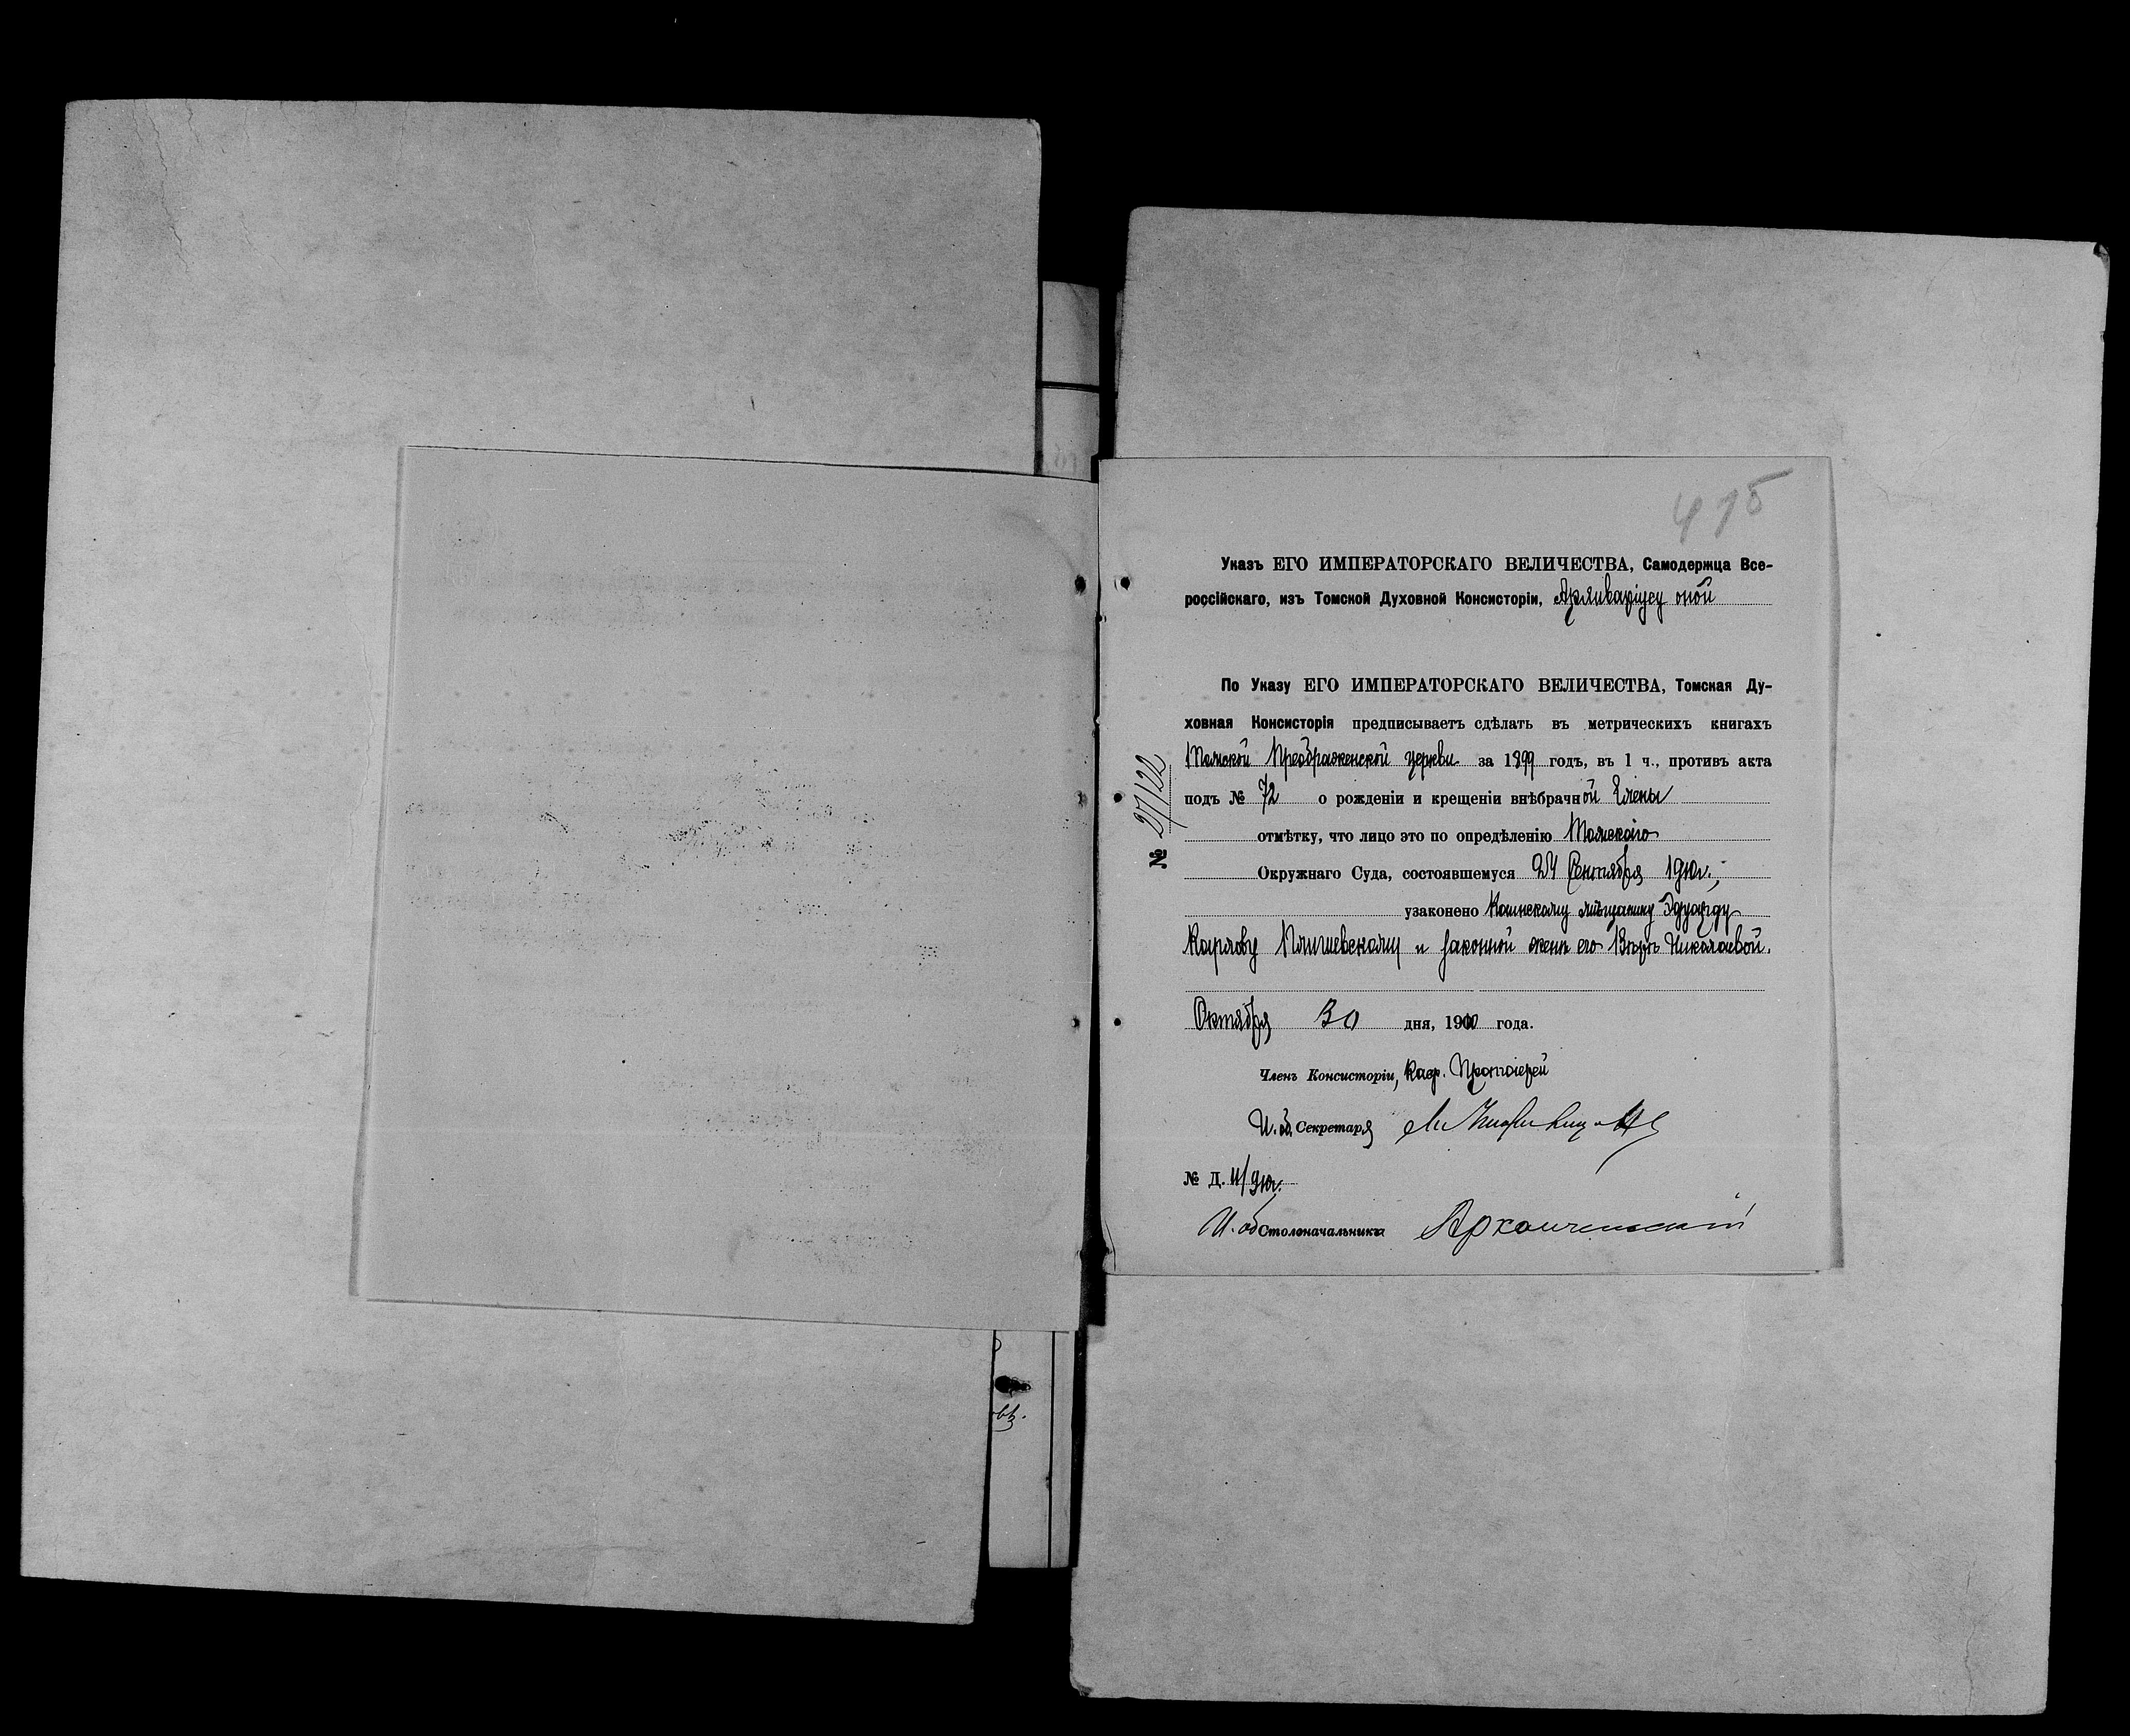 415
Указъ ЕГО ИМПЕРАТОРСКАГО ВЕЛИЧЕСТВА, Самодержца Все-
россійскаго, изъ Томской Духовной Консисторіи, Архиваріусу оной
По Указу ЕГО ИМПЕРАТОРСКАГО ВЕЛИЧЕСТВА, Томская Ду-
ховная Консисторія предписываетъ сдѣлать въ метрическихъ книгахъ
Томской Преображенской церкви за 1899 годъ, въ 1 ч., противъ акта
подъ № 72 о рожденіи и крещеніи внѣбрачной Елены
отмѣтку, что лицо это по опредѣленію Томскаго
Окружнаго Суда, состоявшемуся 24 Сентября 1910г.,
узаконено Каинскому мѣщанину Эдуарду
Карлову и законной женѣ его Вѣрѣ Николаевой.
Октября 30 дня, 1910 года.
Членъ Консисторіи, Каѳ. Протоіерей
И. об. Секретаря
№ Д. 11/910г.
И. об Столоначальника
№ 27122